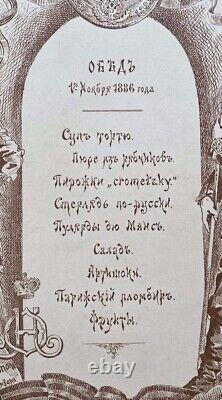 ОБѢДЪ
1го Ноября 1886 года
Супъ тортю.
Пюре изъ рябчиковъ.
Пирожки „crometzky."
Стерлядь по-русски.
Пулярды дю Мансъ.
Саладъ.
Артишоки.
Парижскій пломбиръ.
Фрукты.